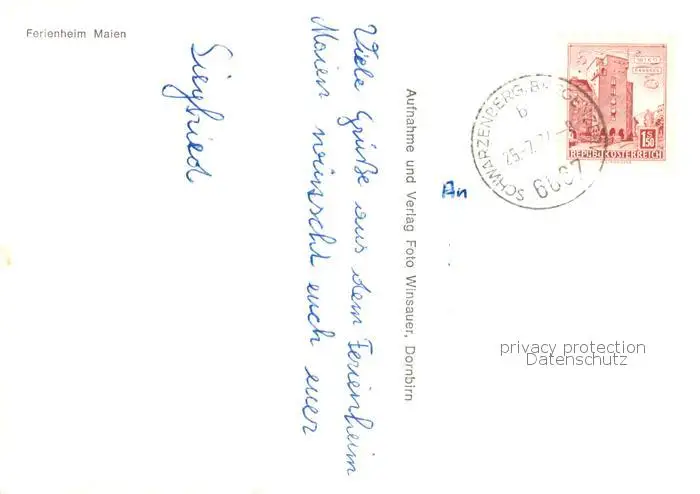 Ferienheim Maien
Viele Grüße aus dem Ferienheim
Maien wünscht euch euer
Siegfried
Aufnahme und Verlag Foto Winsauer, Dornbirn
An
SCHWARZENBERG, BREGENZERW
b
25.-7.77.-8
6867
S 1.50
REPUBLIK ÖSTERREICH
privacy protection
Datenschutz